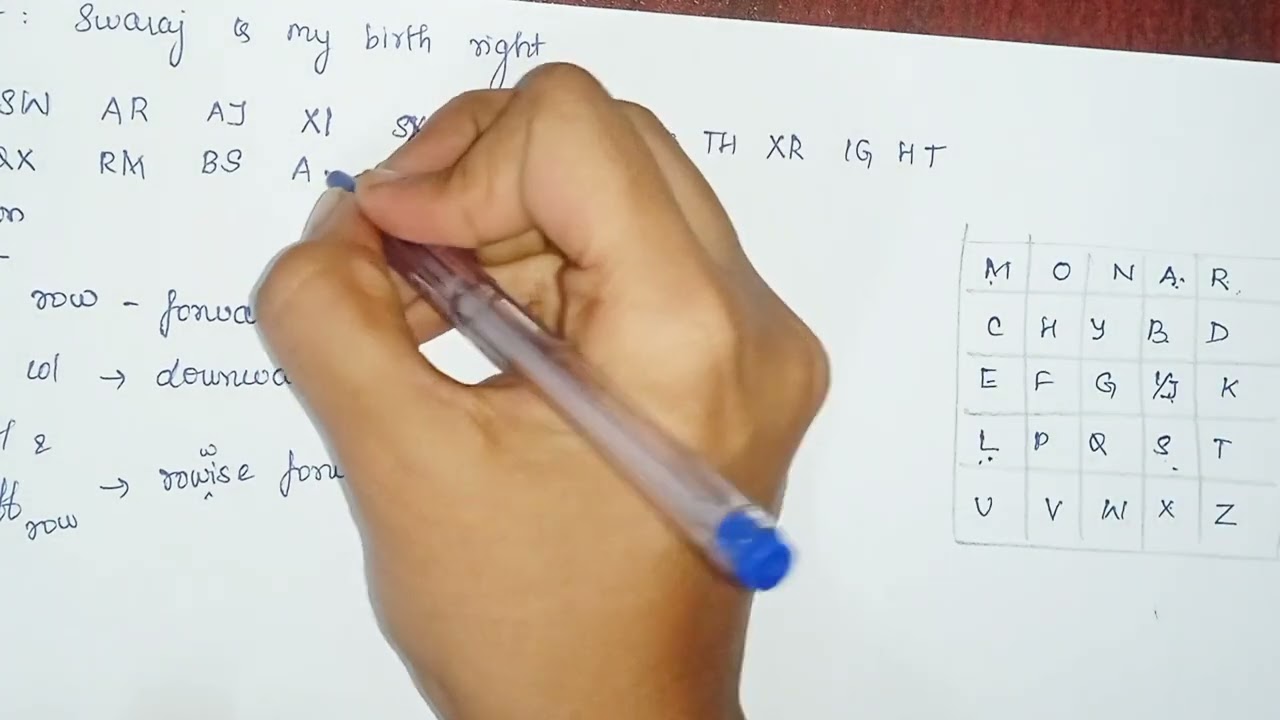 : Swaraj is my birth right
SW AR AJ XI SX TH XR IG HT
QX RM BS A
on
row - forwa
col → downwa
& 
→ rowise forw
w
row
M O N A R
C H Y B D
E F G I/J K
L P Q S T
U V W X Z